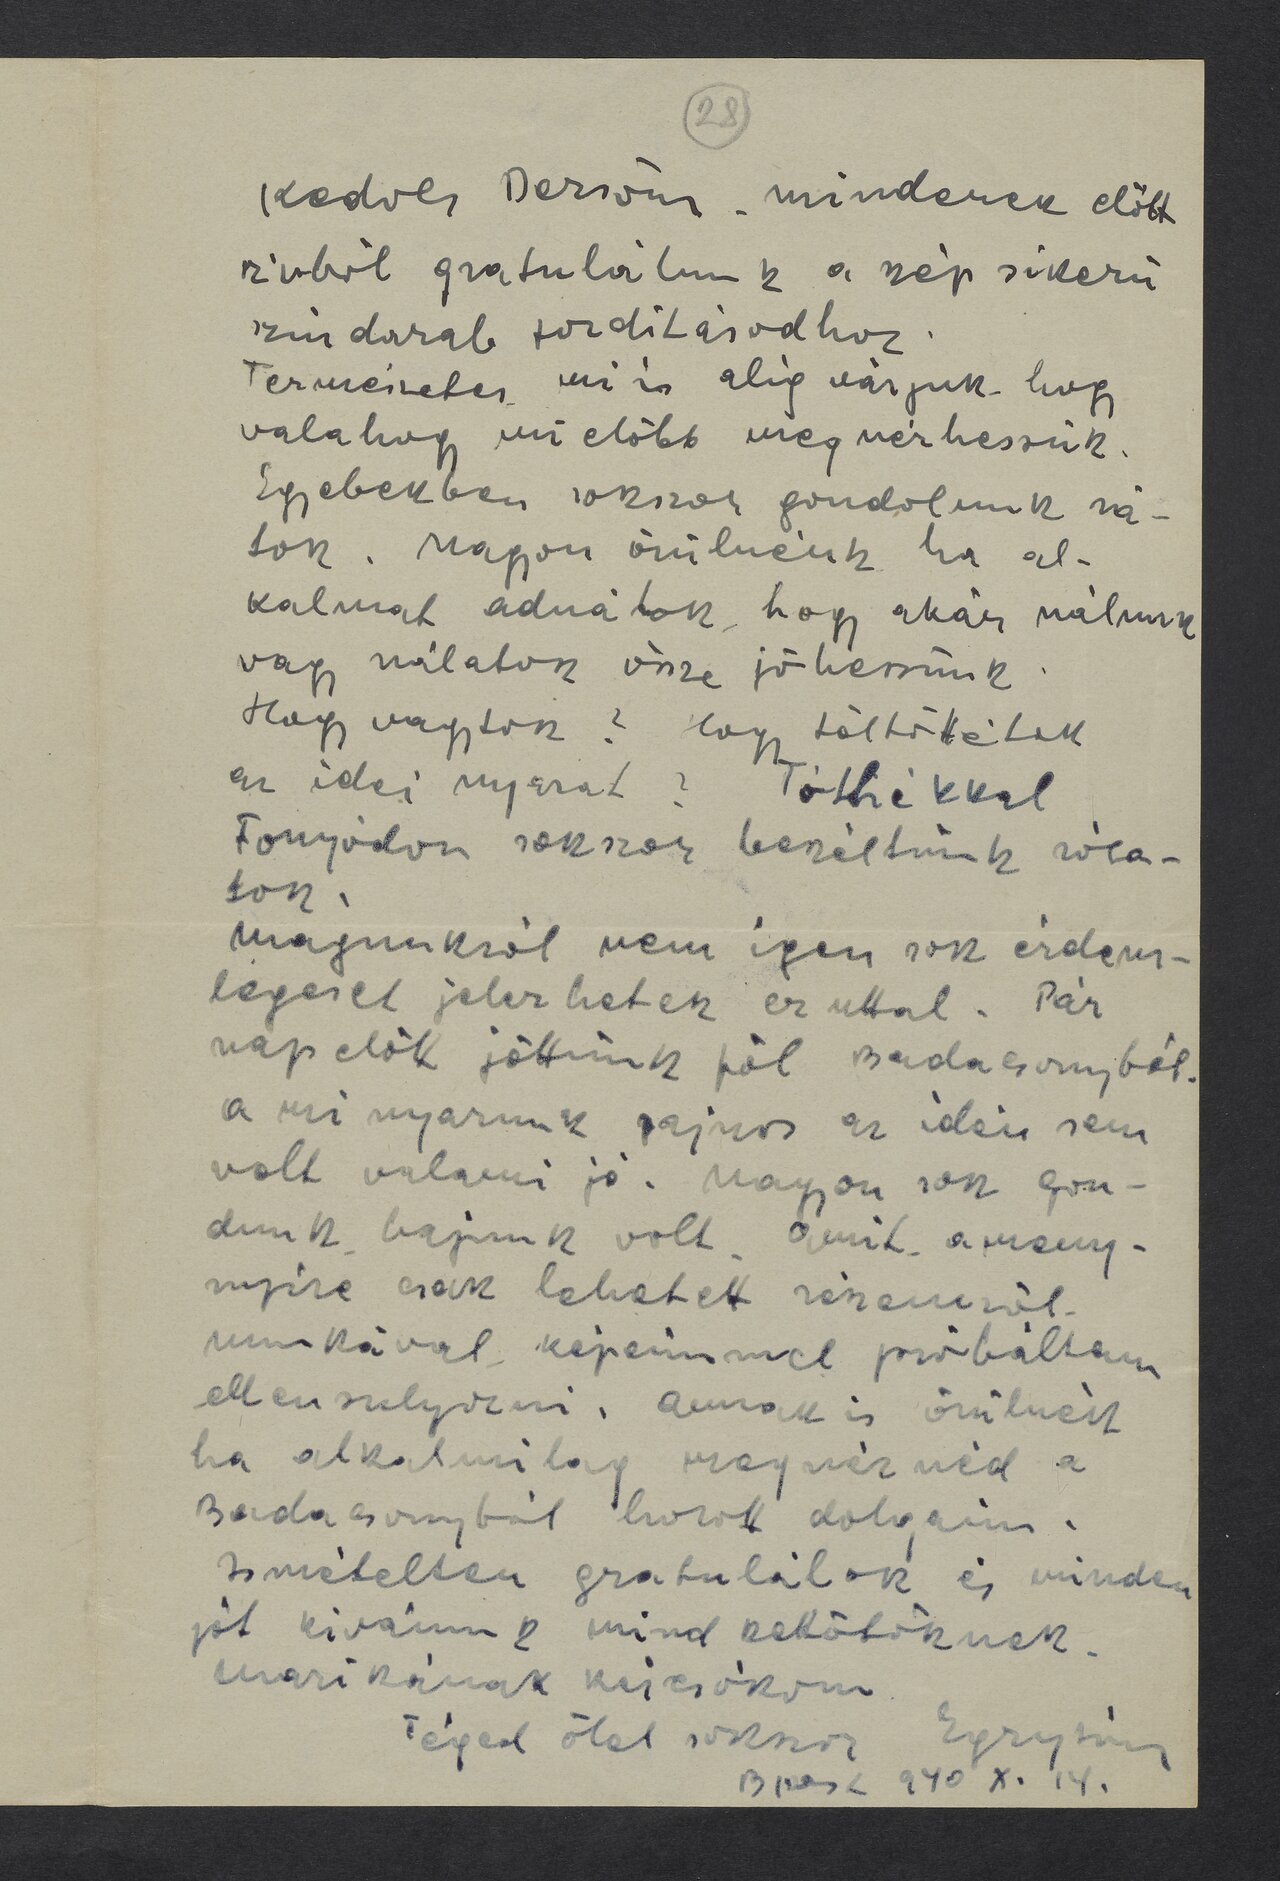 28
Kedves Dezsőm - mindenek előtt
szivből gratulálunk a szép sikerü
szindarab forditásodhoz.
Természetes mi is alig várjuk hogy
valahogy mielőbb megnézhessük.
Egyebekben sokszor gondolunk rá-
tok. Nagyon örülnénk ha al-
kalmat adnátok, hogy akár nálunk
vagy nálatok össze jöhessünk.
Hogy vagytok? hogy töltöttétek
az idei nyarat? Tóthékkal
Fonyódon sokszor beszéltünk róla-
tok.
Magunkról nem igen sok érdem-
legeset jelezhetek ez uttal. Pár
nap előtt jöttünk föl Badacsonyból.
a mi nyarunk sajnos az idén sem
volt valami jó. Nagyon sok gon-
dunk bajunk volt. Amit ameny-
nyire csak lehetett részemről
munkával képeimmel próbáltam
ellensulyozni. Annak is örülnék
ha alkalmilag megnéznéd a
Badacsonyból hozott dolgaim.
Ismételten gratulálok és minden
jót kivánunk mind kettőtöknek.
Marikának kézcsókom
Téged ölel sokszor Egry
Bpest 940 X. 14.